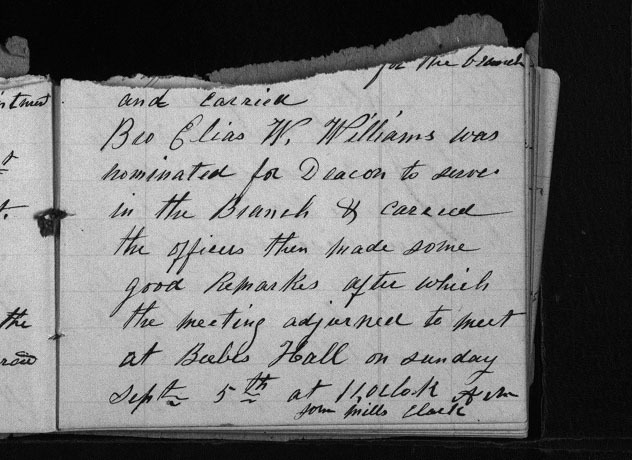 for the branch
and carried
Bro Elias W. Williams was
nominated for Deacon to serve
in the Branch & carried
the officers then made some
good Remarks after which
the meeting adjurned to meet
at Beebes Hall on sunday
Sept 5th at 11,oclok A m
Mills Clerk
the